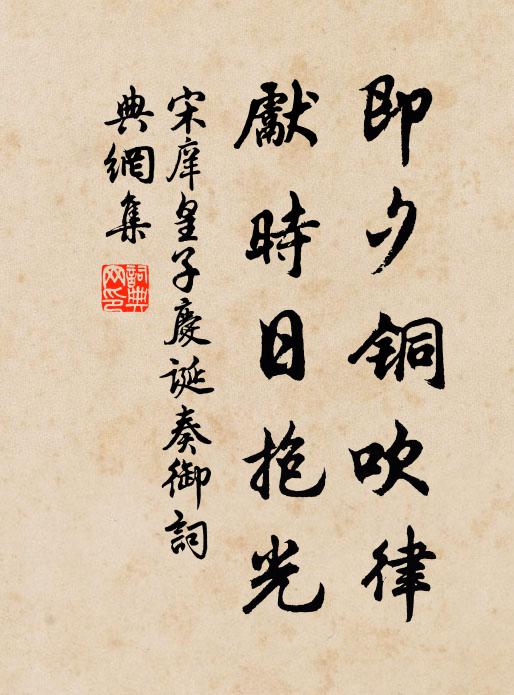 即夕铜吹律
獻時日抱光
宋庠皇子慶誕奏御詞
典網集
詞典網印